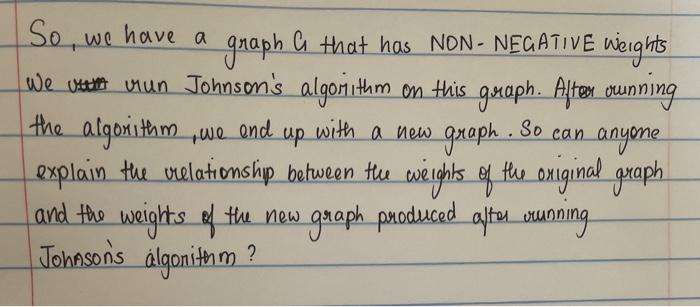 So, we have a graph G that has NON-NEGATIVE weights
We run Johnson's algorithm on this graph. After running
the algorithm, we end up with a new graph. So can anyone
explain the relationship between the weights of the original graph
and the weights of the new graph produced after running
Johnson's algorithm?